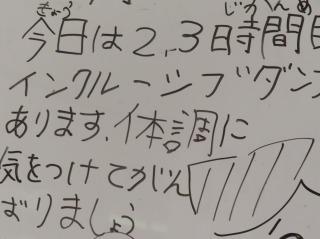 きょう じかんめ
今日は2,3日寺間目
インクルーシブダン
あります、体調に
気をつけてがん
ばりましょう